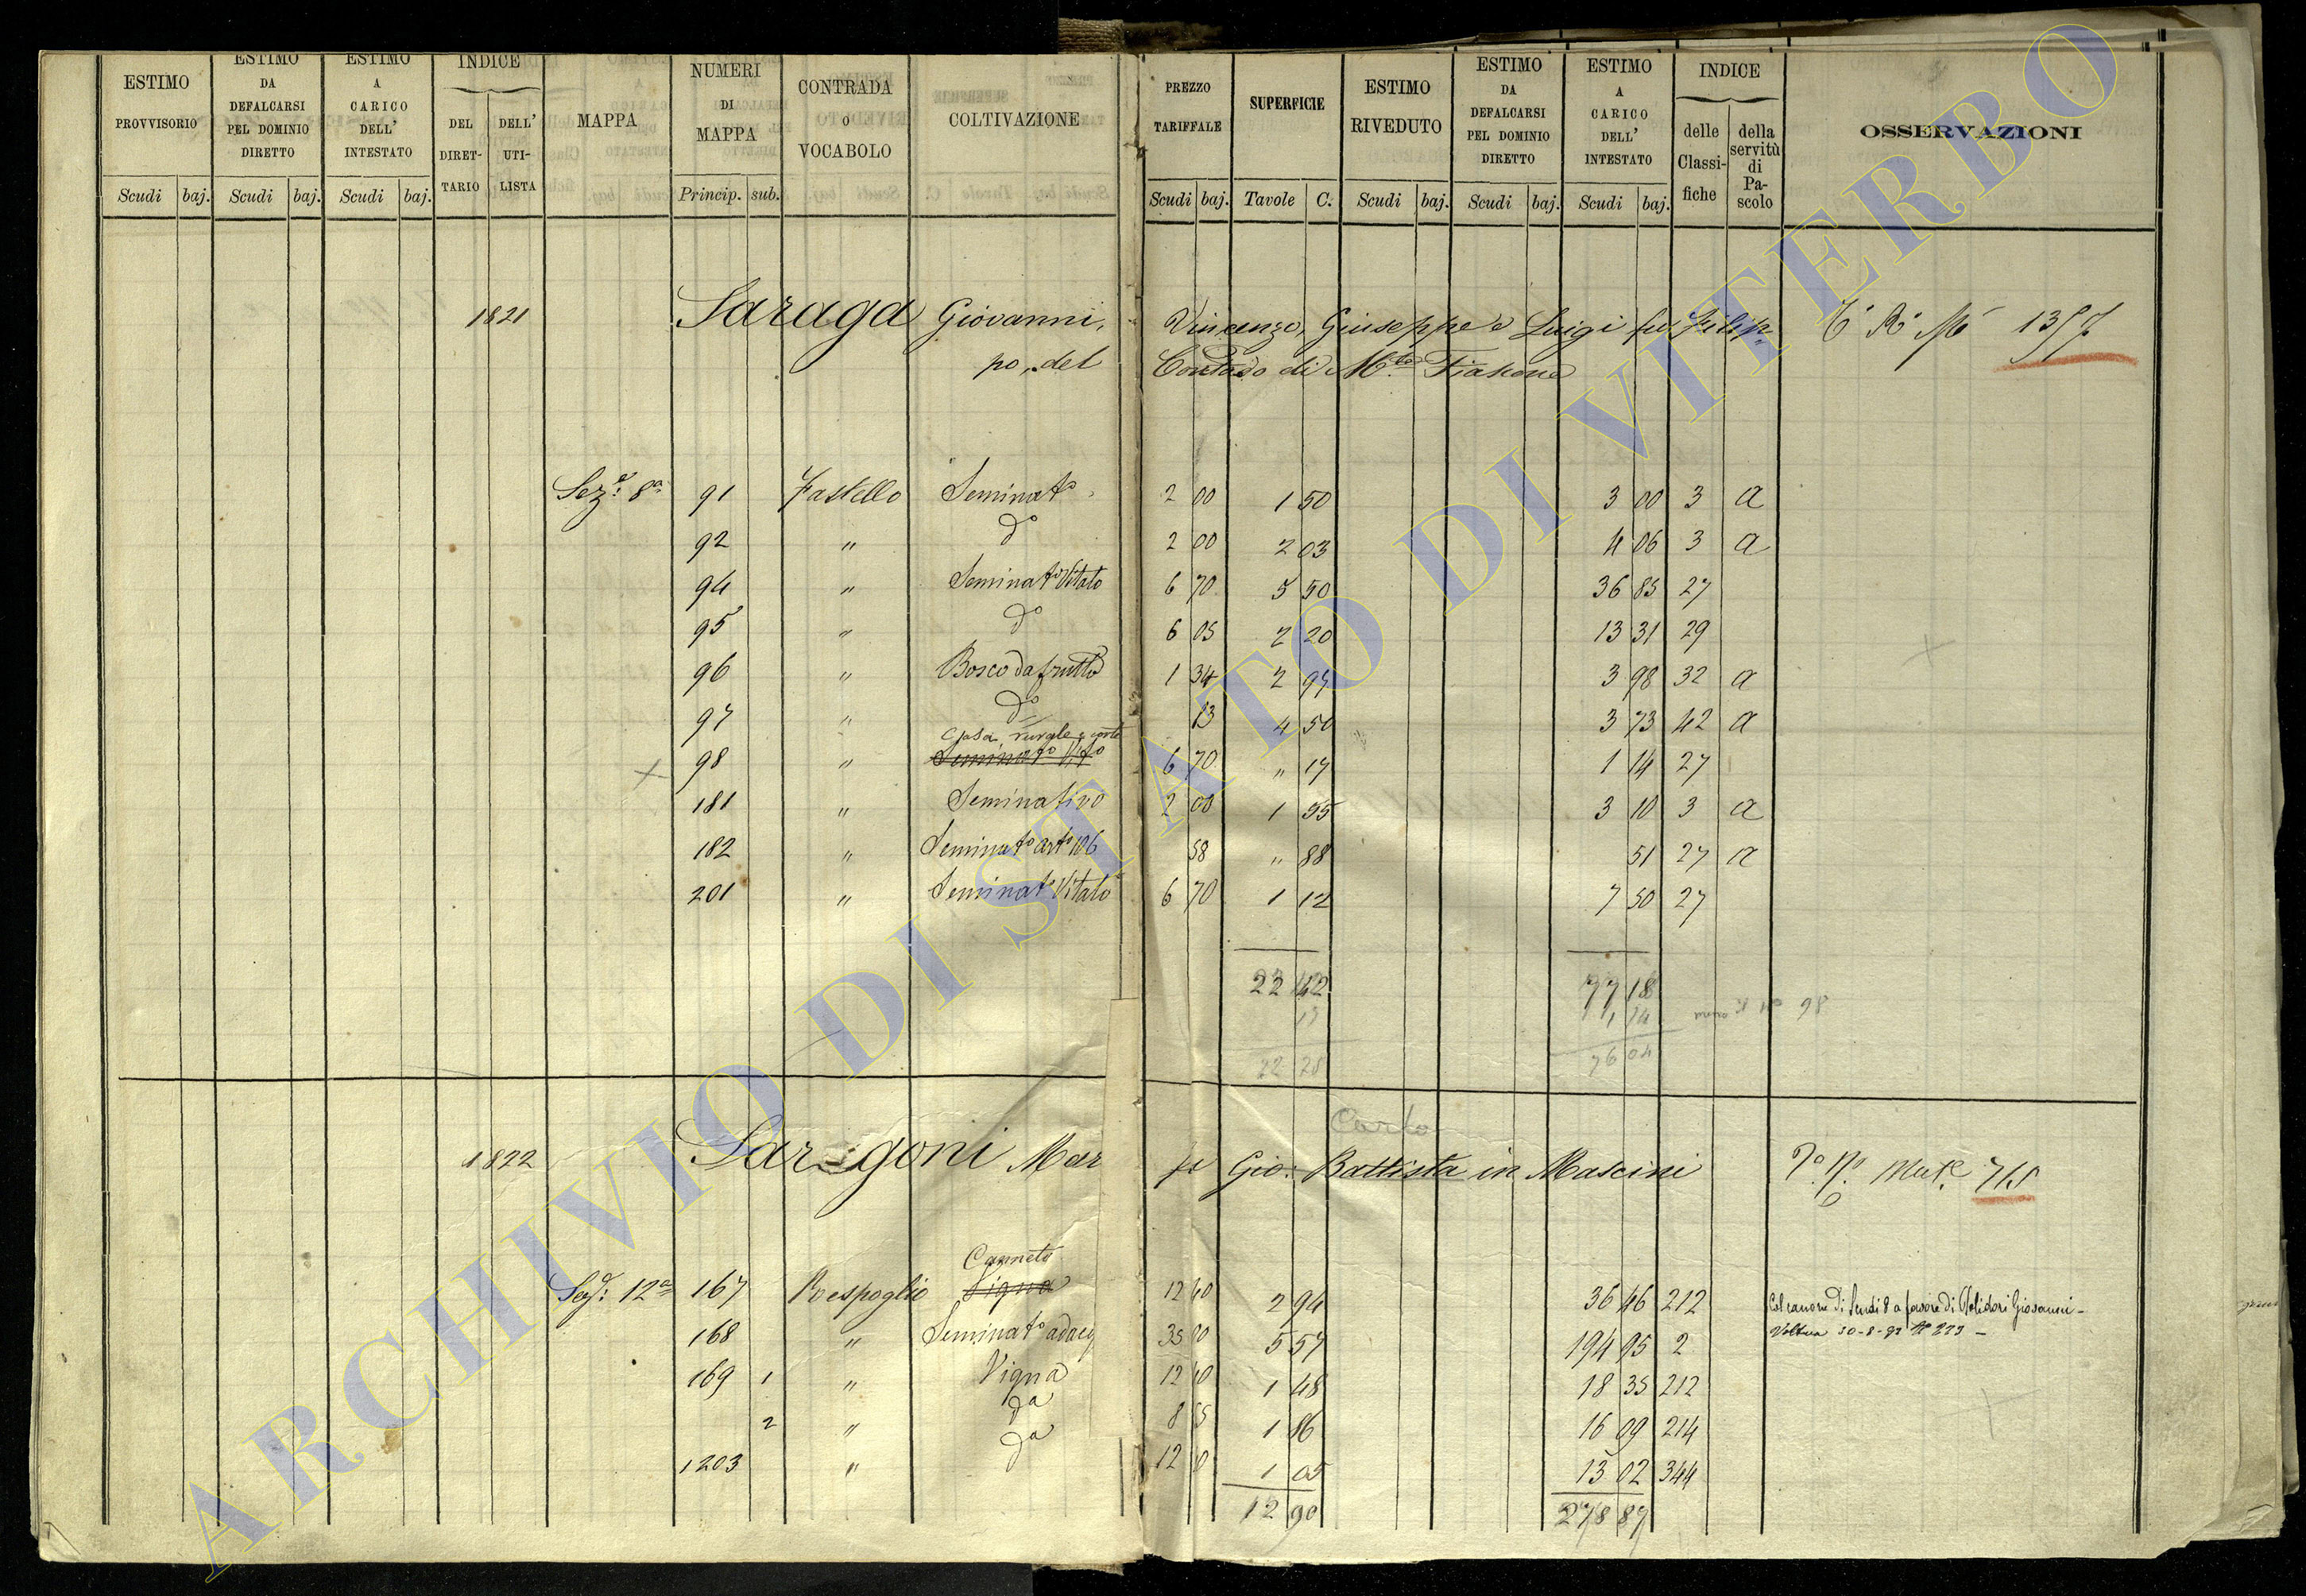 ESTIMO PROVVISORIO ESTIMO DA DEFALCARSI PEL DOMINIO DIRETTO ESTIMO A CARICO DELL' INTESTATO INDICE DEL DIRETTARIO DELL' UTILISTA MAPPA NUMERI DI MAPPA CONTRADA O VOCABOLO COLTIVAZIONE PREZZO TARIFFALE SUPERFICIE ESTIMO RIVEDUTO ESTIMO DA DEFALCARSI PEL DOMINIO DIRETTO ESTIMO A CARICO DELL' INTESTATO INDICE delle Classifiche della servitù di Pascolo OSSERVAZIONI
Scudi baj. Scudi baj. Scudi baj. Princip. sub. Scudi baj. Tavole C. Scudi baj. Scudi baj. Scudi baj.
1821 Saraga Giovanni, Vincenzo, Giuseppe e Luigi fu Filip- 1357
po, del Contado di M.te Fiascone
Sez.e 8a 91 Fastello Seminato 2 00 1 50 3 00 3 a
92 " do 2 00 2 03 4 06 3 a
94 " Seminato Vitato 6 70 5 50 36 85 27
95 " do 6 05 2 20 13 31 29
96 " Bosco da frutto 1 34 2 97 3 98 32 a
97 " do 4 50 3 73 42 a
Casa rurale e corte
98 " Seminato Vito 6 70 " 17 1 14 27
181 " Seminativo 2 00 1 55 3 10 3 a
182 " Seminato arto 106 58 " 88 51 27 a
201 " Seminato Vitato 6 70 1 12 7 50 27
22 42 77 18
17 1 14 98
22 25 76 04
Carlo
1822 Saragoni Mar Gio: Battista in Mascini 715
Canneto
Sez: 12a 167 Roespoglio Vigna 12 40 2 94 36 46 212 Col canone di Scudi 8 a favore di Polidori Giovanni -
168 " Seminato adacq 35 00 5 57 194 95 2 Voltura
169 1 " Vigna 12 40 1 48 18 35 212
2 " da 8 65 1 86 16 09 214
1203 " da 12 40 1 05 13 02 344
12 90 278 87
ARCHIVIO DI STATO DI VITERBO